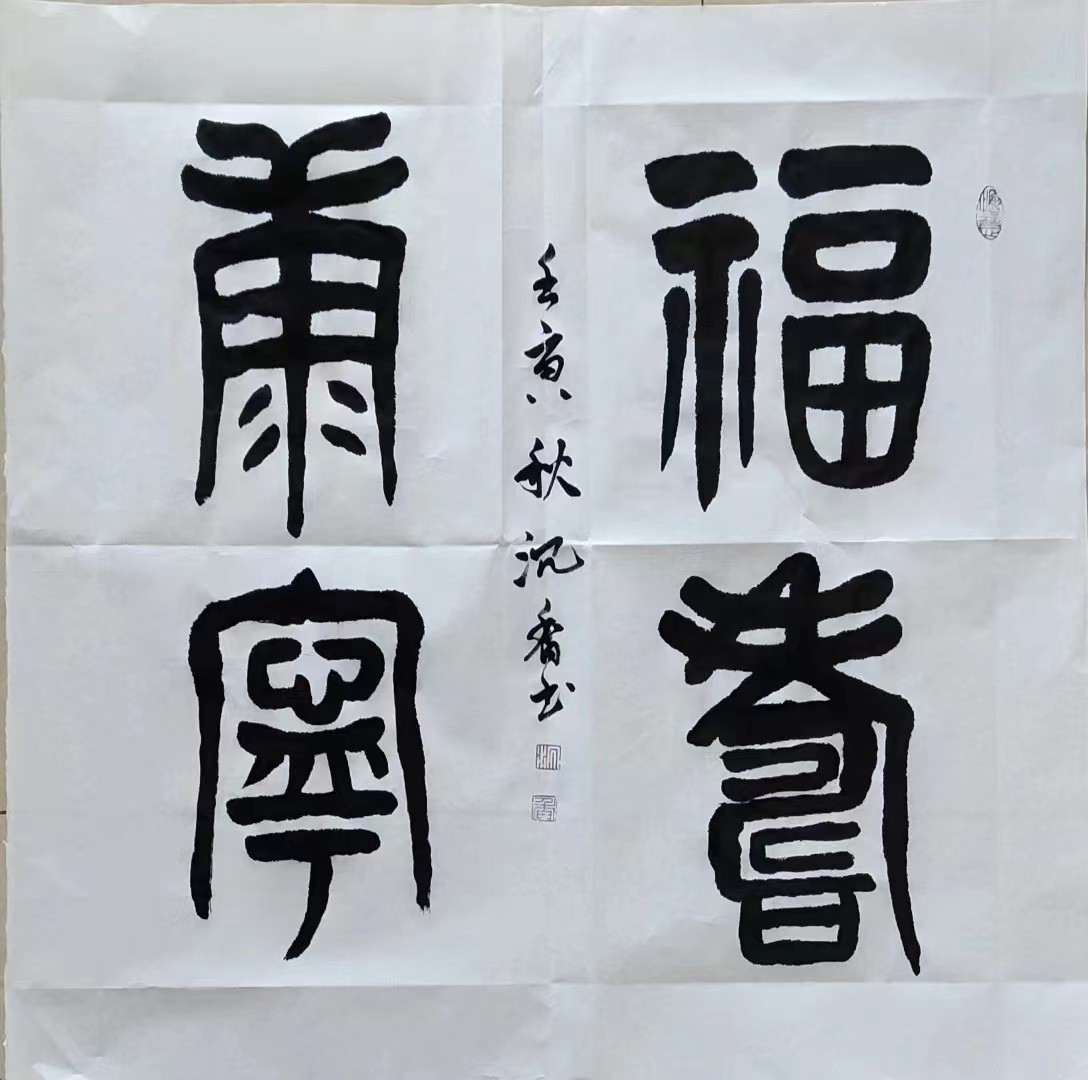 福壽
康寧
壬寅秋沉香书